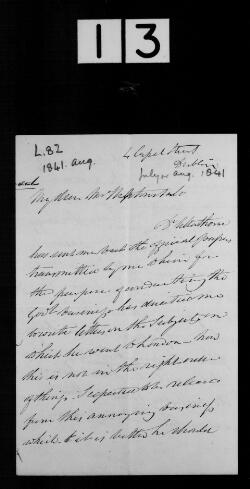 13
L.82
1841. Aug.
4 Capel Street
Dublin
July or Aug. 1841
My dear Mr
Dr
has sent me back the official papers
transmitted by me to him for
the purpose of conducting the
Govt business & has
to write letters on the subjects on
which he went to London – now
this is not in the right order
of things. I expected to be released
from this annoying business
which it is better he should